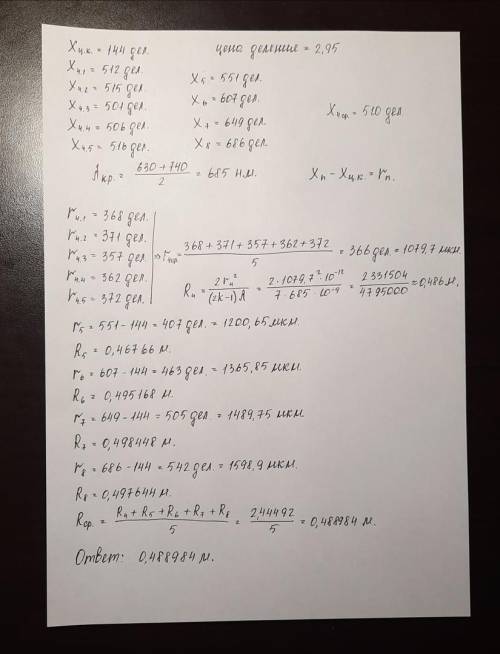 Xц.к. = 144 дел.   цена деления = 2,95
X4.1 = 512 дел.
X4.2 = 515 дел.   X5 = 551 дел.
X4.3 = 501 дел.   X6 = 607 дел.   X4ср = 510 дел.
X4.4 = 506 дел.   X7 = 649 дел.
X4.5 = 516 дел.   X8 = 686 дел.
λкр. = (630 + 740)/2 = 685 нм.   Xn - Xц.к. = rn.
r4.1 = 368 дел.
r4.2 = 371 дел.
r4.3 = 357 дел. ⇒ r4ср = (368 + 371 + 357 + 362 + 372)/5 = 366 дел = 1079,7 мкм.
r4.4 = 362 дел.   R4 = 2r4²/((2k-1)λ) = (2·1079,7²·10⁻¹²)/(7·685·10⁻⁹) = 2331504/4795000 ≈ 0,486 м.
r4.5 = 372 дел.
r5 = 551 - 144 = 407 дел. = 1200,65 мкм.
R5 = 0,46766 м.
r6 = 607 - 144 = 463 дел. = 1365,85 мкм.
R6 = 0,495168 м.
r7 = 649 - 144 = 505 дел. = 1489,75 мкм.
R7 = 0,498448 м.
r8 = 686 - 144 = 542 дел. = 1598,9 мкм.
R8 = 0,497644 м.
Rср. = (R4 + R5 + R6 + R7 + R8)/5 = 2,44492/5 = 0,488984 м.
Ответ: 0,488984 м.